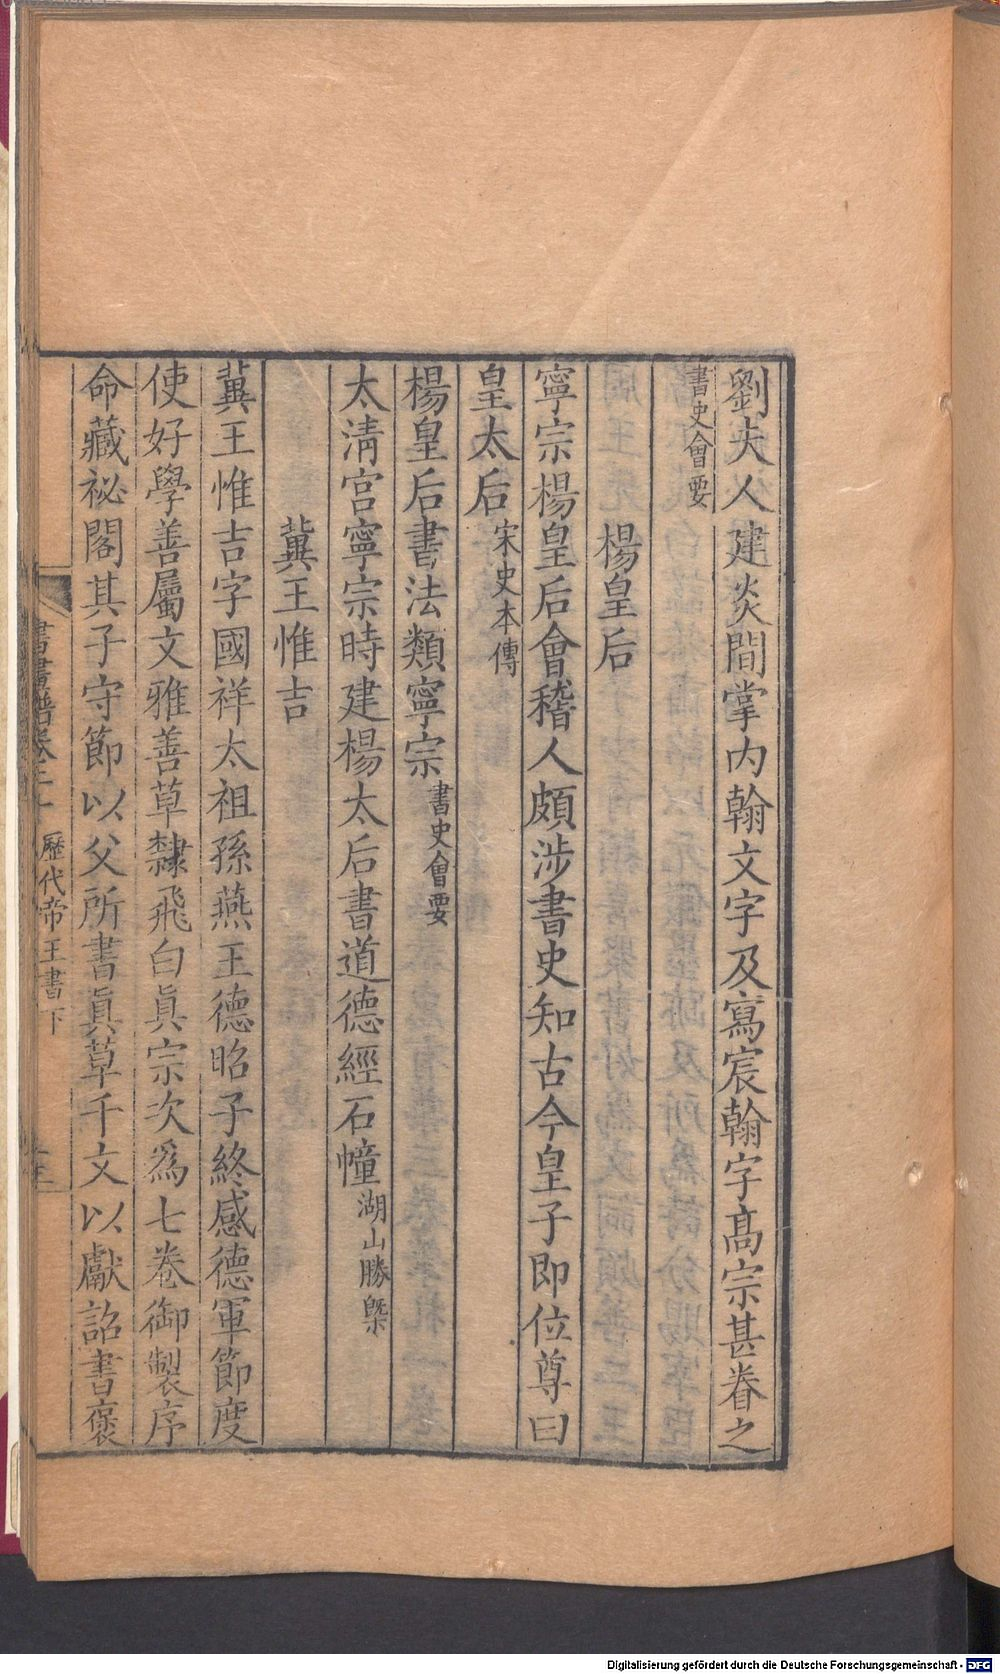 劉夫人建炎間掌内翰文字及寫宸翰字高宗甚眷之
書史會要
楊皇后
寧宗楊皇后會稽人頗涉書史知古今皇子即位尊曰
皇太后宋史本傳
楊皇后書法類寧宗書史會要
太清宫寧宗時建楊太后書道德經石幢湖山勝槩
冀王惟吉
冀王惟吉字國祥太祖孫燕王德昭子終感德軍節度
使好學善屬文雅善草隸飛白眞宗次爲七卷御製序
命藏祕閣其子守節以父所書眞草千文以獻詔書褒
書畫譜卷二十 歷代帝王書下
Digitalisierung gefördert durch die Deutsche Forschungsgemeinschaft - DFG